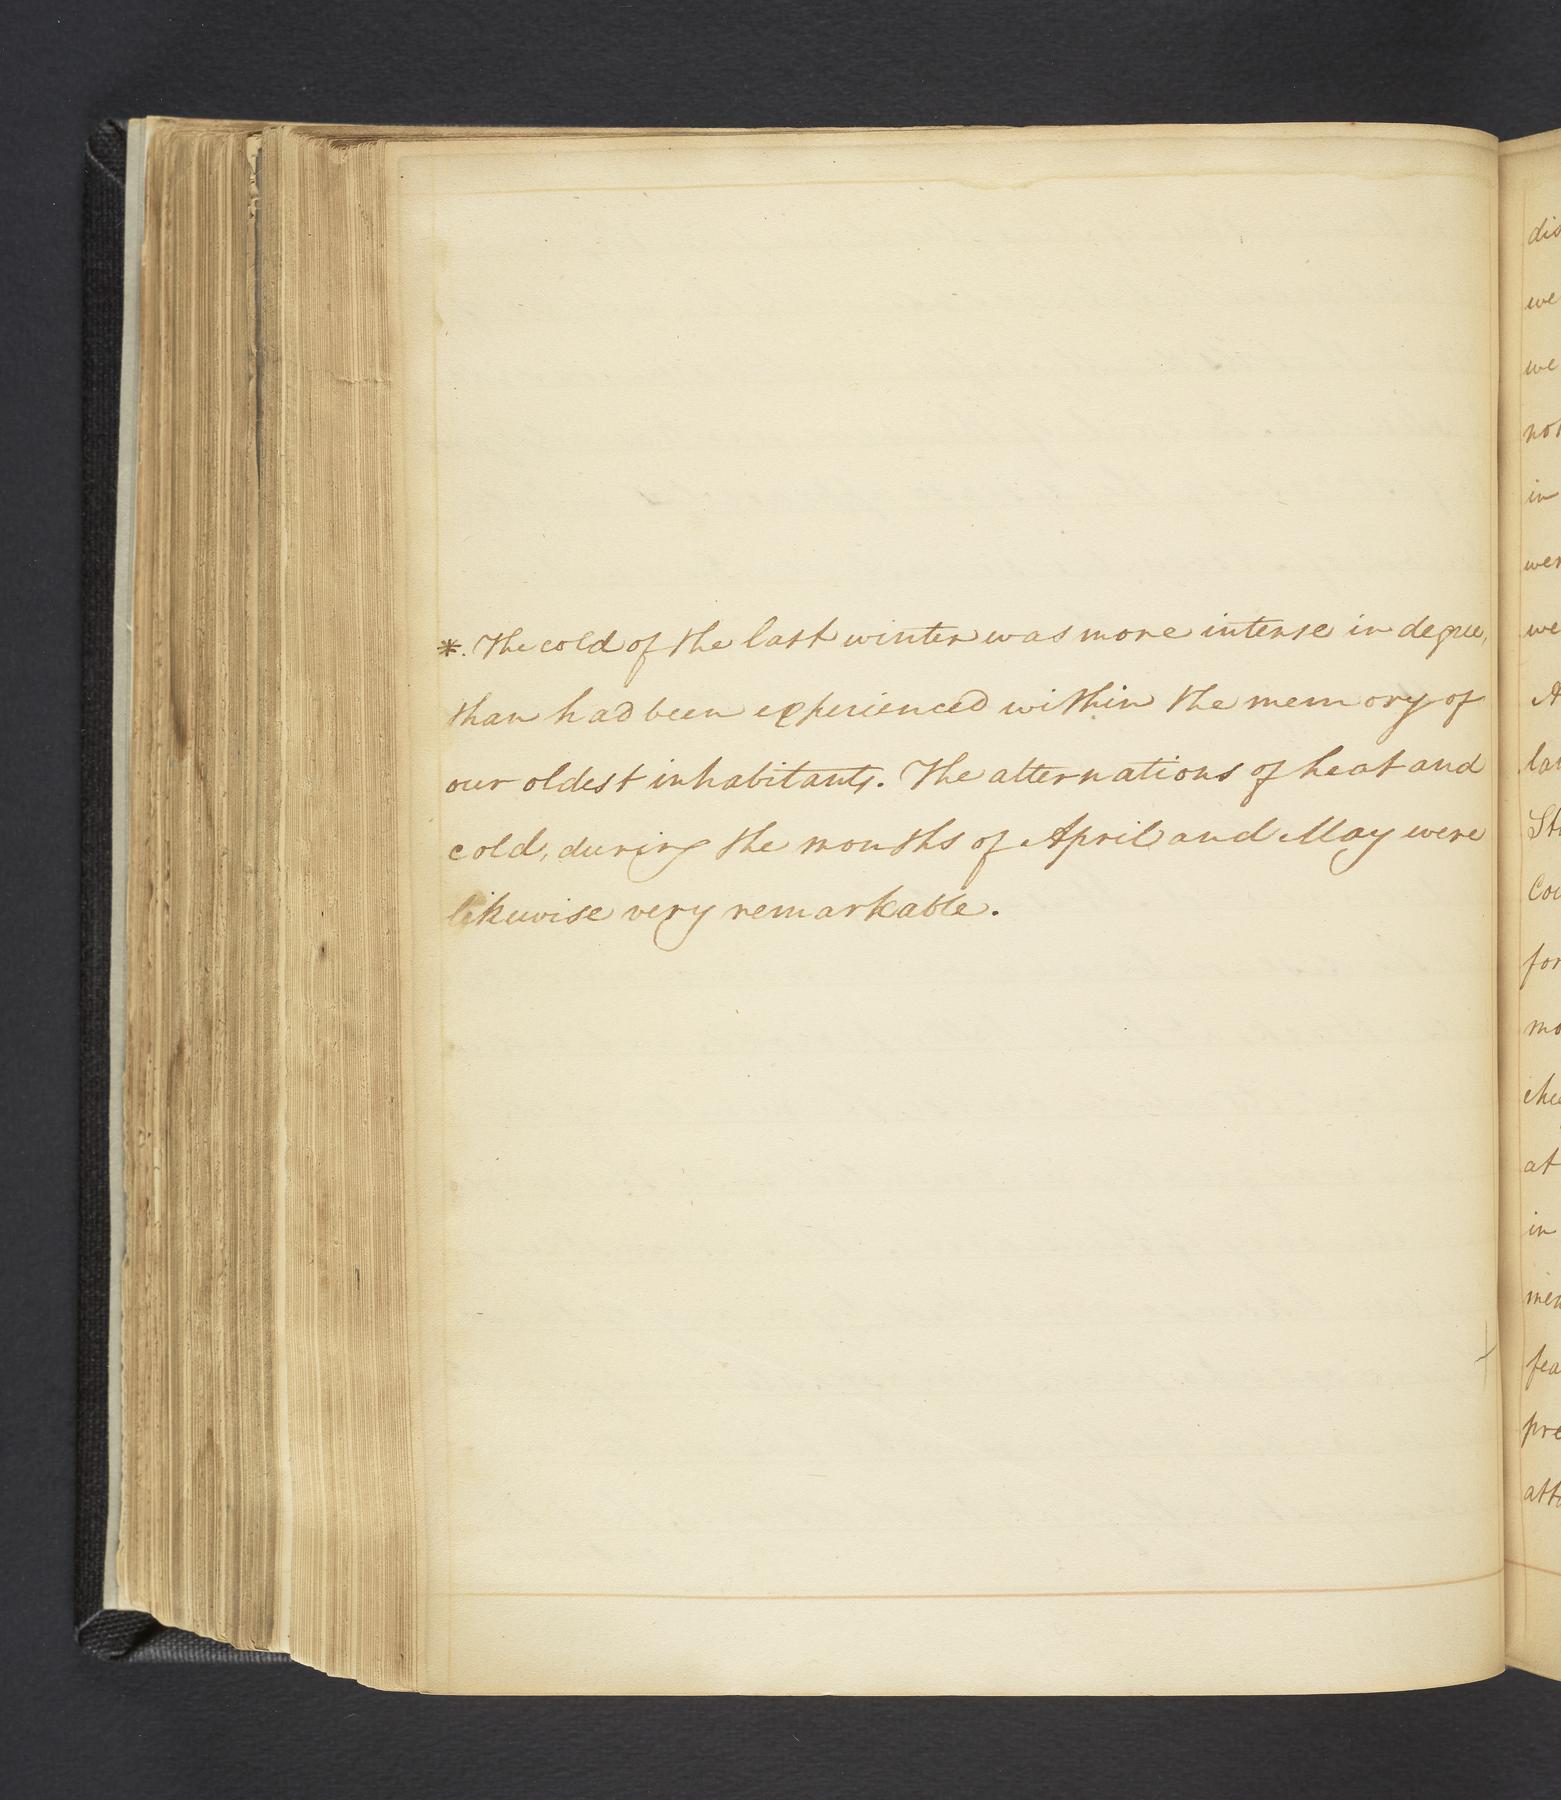 *. The cold of the last winter was more intense in degree,
than had been experienced within the memory of
our oldest inhabitants. The alternations of heat and
cold, during the months of April and May were
likewise very remarkable.
we
we
in
we
at
in